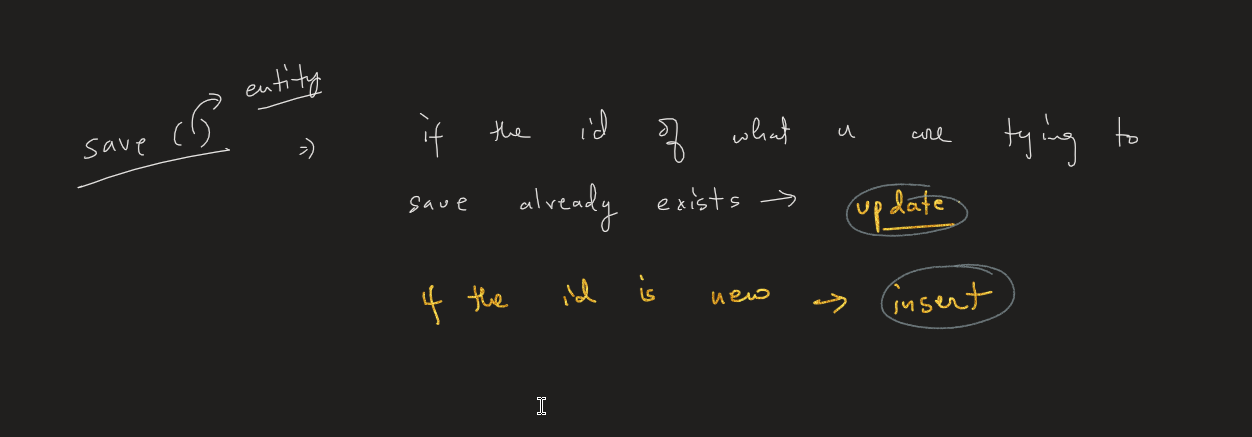 entity
save () => if the id of what u are trying to
save already exists → update
if the id is new → insert